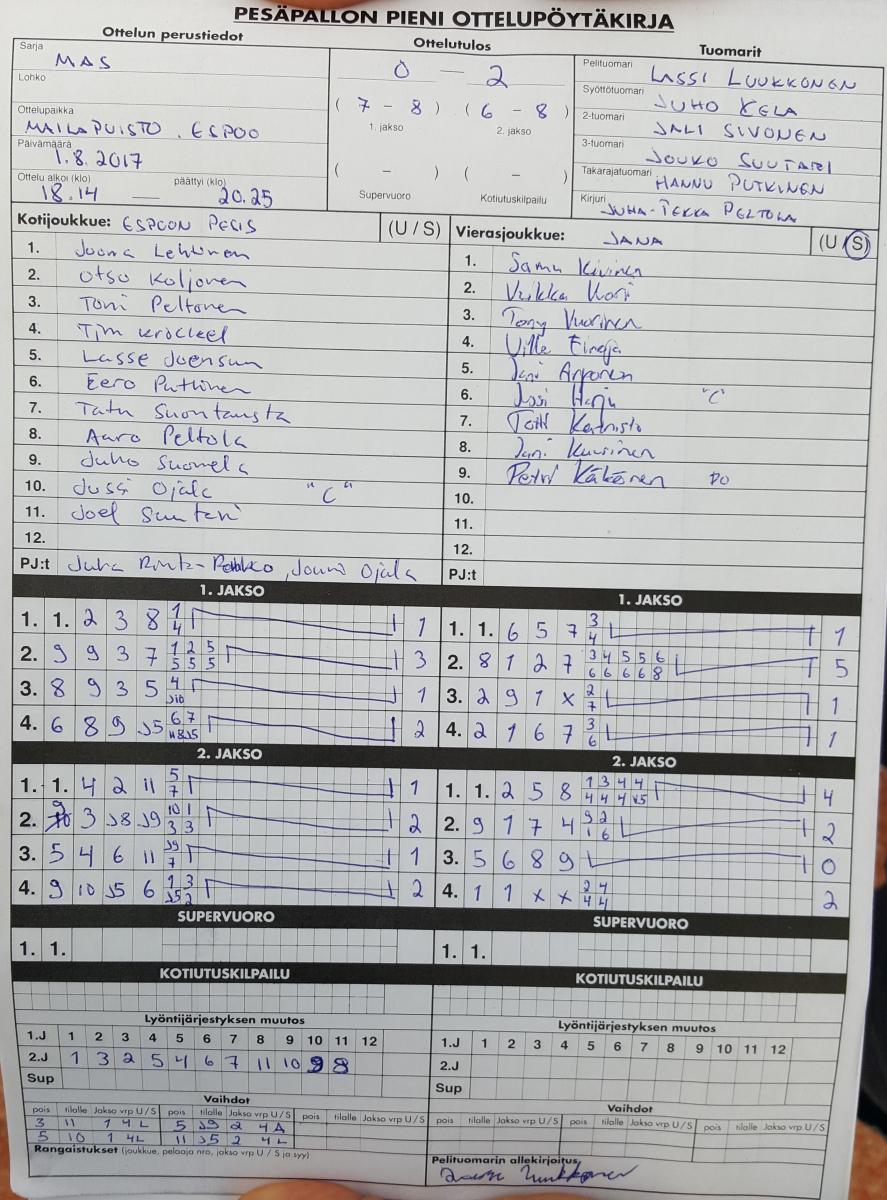 PESÄPALLON PIENI OTTELUPÖYTÄKIRJA
Ottelun perustiedot
Ottelutulos
Tuomarit
Sarja MAS
Lohko
Ottelupaikka
MAILAPUISTO, ESPOO
Päivämäärä
1.8.2017
Ottelu alkoi (klo) päättyi (klo)
18.14 — 20.25
0 — 2
( 7 - 8 ) ( 6 - 8 )
1. jakso 2. jakso
( - ) ( - )
Supervuoro Kotiutuskilpailu
Pelituomari LASSI LUUKKONEN
Syöttötuomari JUHO KELA
2-tuomari JALI SIVONEN
3-tuomari JOUKO SUUTARI
Takarajatuomari HANNU PUTKINEN
Kirjuri JUHA-PEKKA PELTOLA
Kotijoukkue: ESPOON PESIS (U / S)
1. Joona Lehtonen
2. Otso Koljonen
3. Toni Peltonen
4. Tim Krockel
5. Lasse Joensuu
6. Eero Putkinen
7. Tatu Suontausta
8. Aaro Peltola
9. Juho Suomela
10. Jussi Ojala "C"
11. Joel Suutari
12.
PJ:t Juha , Jouni Ojala
Vierasjoukkue: JANA (U / S)
1. Samu Kivinen
2. Veikka Kari
3. Tony Vuorinen
4. Ville
5. Jani Arponen
6. Jussi Harju "C"
7.
8. Jani Kuusinen
9. Petri Käkönen PO
10.
11.
12.
PJ:t
1. JAKSO
1. 1. 2 3 8 1/4 1
2. 9 9 3 7 1/5 2/5 5/5 3
3. 8 9 3 5 4/J10 1
4. 6 8 9 J5 6/J8 7/J5 2
2. JAKSO
1. 1. 4 2 11 5/7 1
2. 9 3 J8 J9 10/3 1/3 2
3. 5 4 6 11 J9/7 1
4. 9 10 J5 6 1/J5 3/2 2
SUPERVUORO
1. 1.
KOTIUTUSKILPAILU
1. JAKSO
1. 1. 6 5 7 3/4 1
2. 8 1 2 7 3/6 4/6 5/6 5/6 6/8 5
3. 2 9 1 x 2/7 1
4. 2 1 6 7 3/6 1
2. JAKSO
1. 1. 2 5 8 1/4 3/4 4/4 4/J5 4
2. 9 1 7 4 9/1 2/6 2
3. 5 6 8 9 0
4. 1 1 x x 2/4 4/4 2
SUPERVUORO
1. 1.
KOTIUTUSKILPAILU
Lyöntijärjestyksen muutos
1.J 1 2 3 4 5 6 7 8 9 10 11 12
2.J 1 3 2 5 4 6 7 11 10 9 8
Sup
Vaihdot
pois tilalle Jakso vrp U / S pois tilalle Jakso vrp U / S pois tilalle Jakso vrp U / S
3 11 1 4L 5 J9 2 4A
5 10 1 4L 11 J5 2 4L
Rangaistukset (joukkue, pelaaja nro, jakso vrp U / S ja syy)
Lyöntijärjestyksen muutos
1.J 1 2 3 4 5 6 7 8 9 10 11 12
2.J
Sup
Vaihdot
pois tilalle Jakso vrp U / S pois tilalle Jakso vrp U / S pois tilalle Jakso vrp U / S
Pelituomarin allekirjoitus